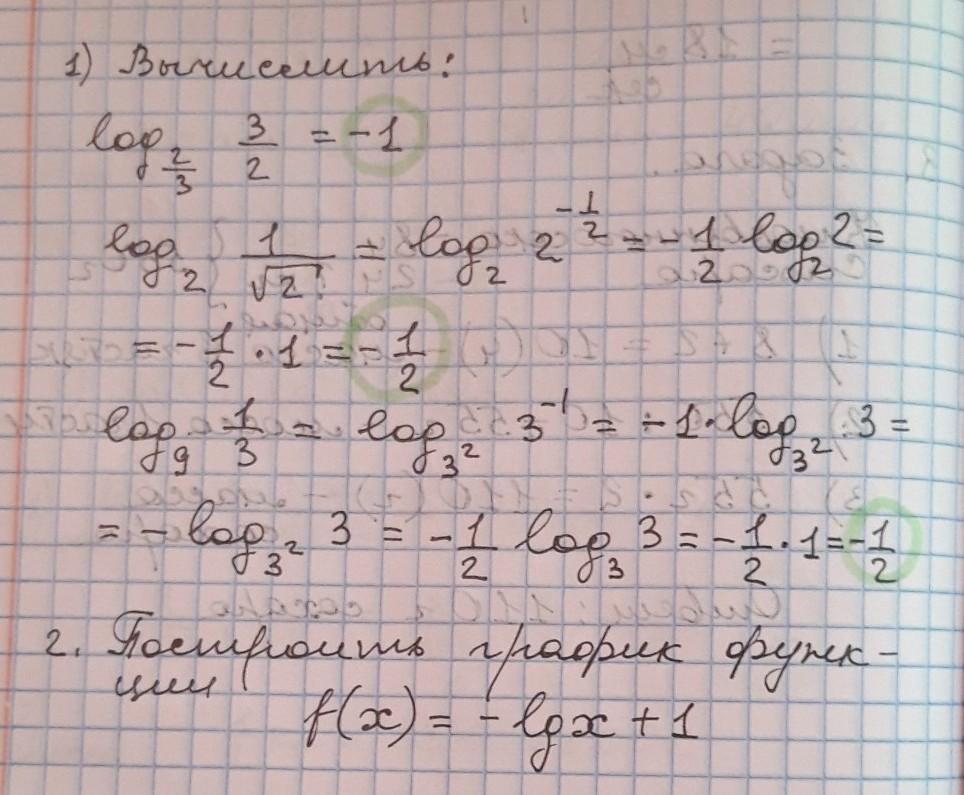 1) Вычислить:
log_{2/3} 3/2 = -1
log_2 1/√2 = log_2 2^{-1/2} = -1/2 log_2 2 =
= -1/2 · 1 = -1/2
log_9 1/3 = log_{3^2} 3^{-1} = -1·log_{3^2} 3 =
= -log_{3^2} 3 = -1/2 log_3 3 = -1/2 · 1 = -1/2
2. Построить график функ-
ции
f(x) = -lgx + 1